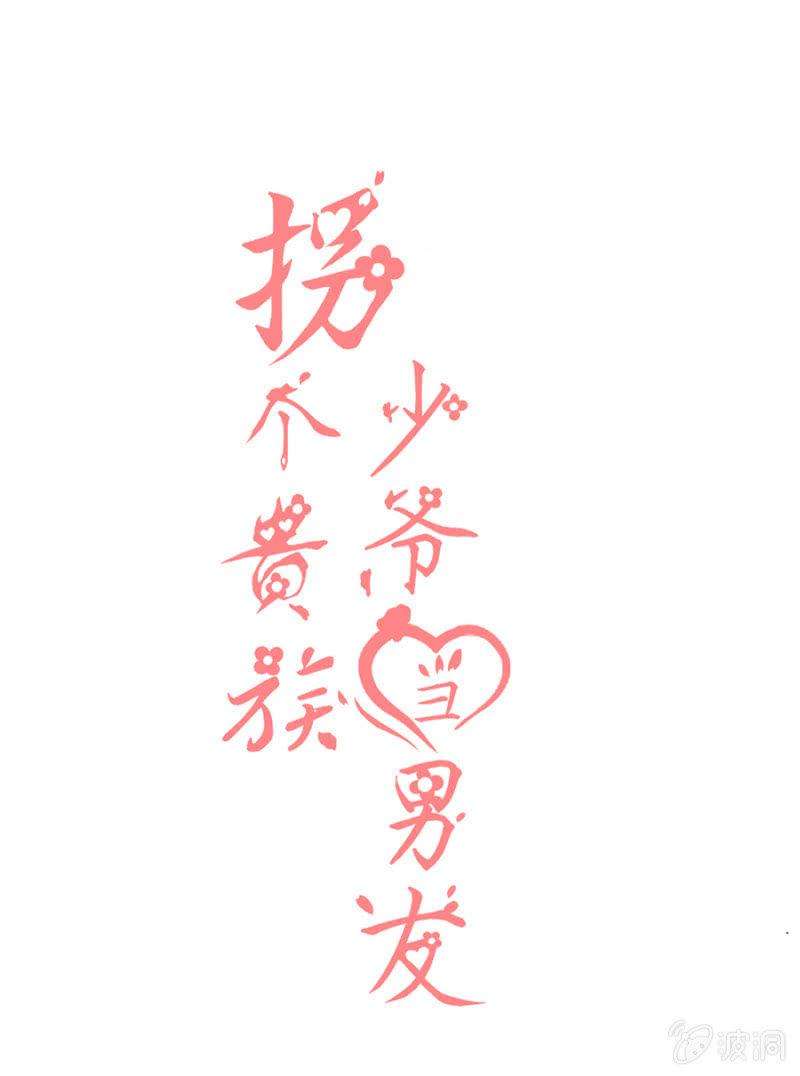 拐个貴族
少爷当男友
波洞